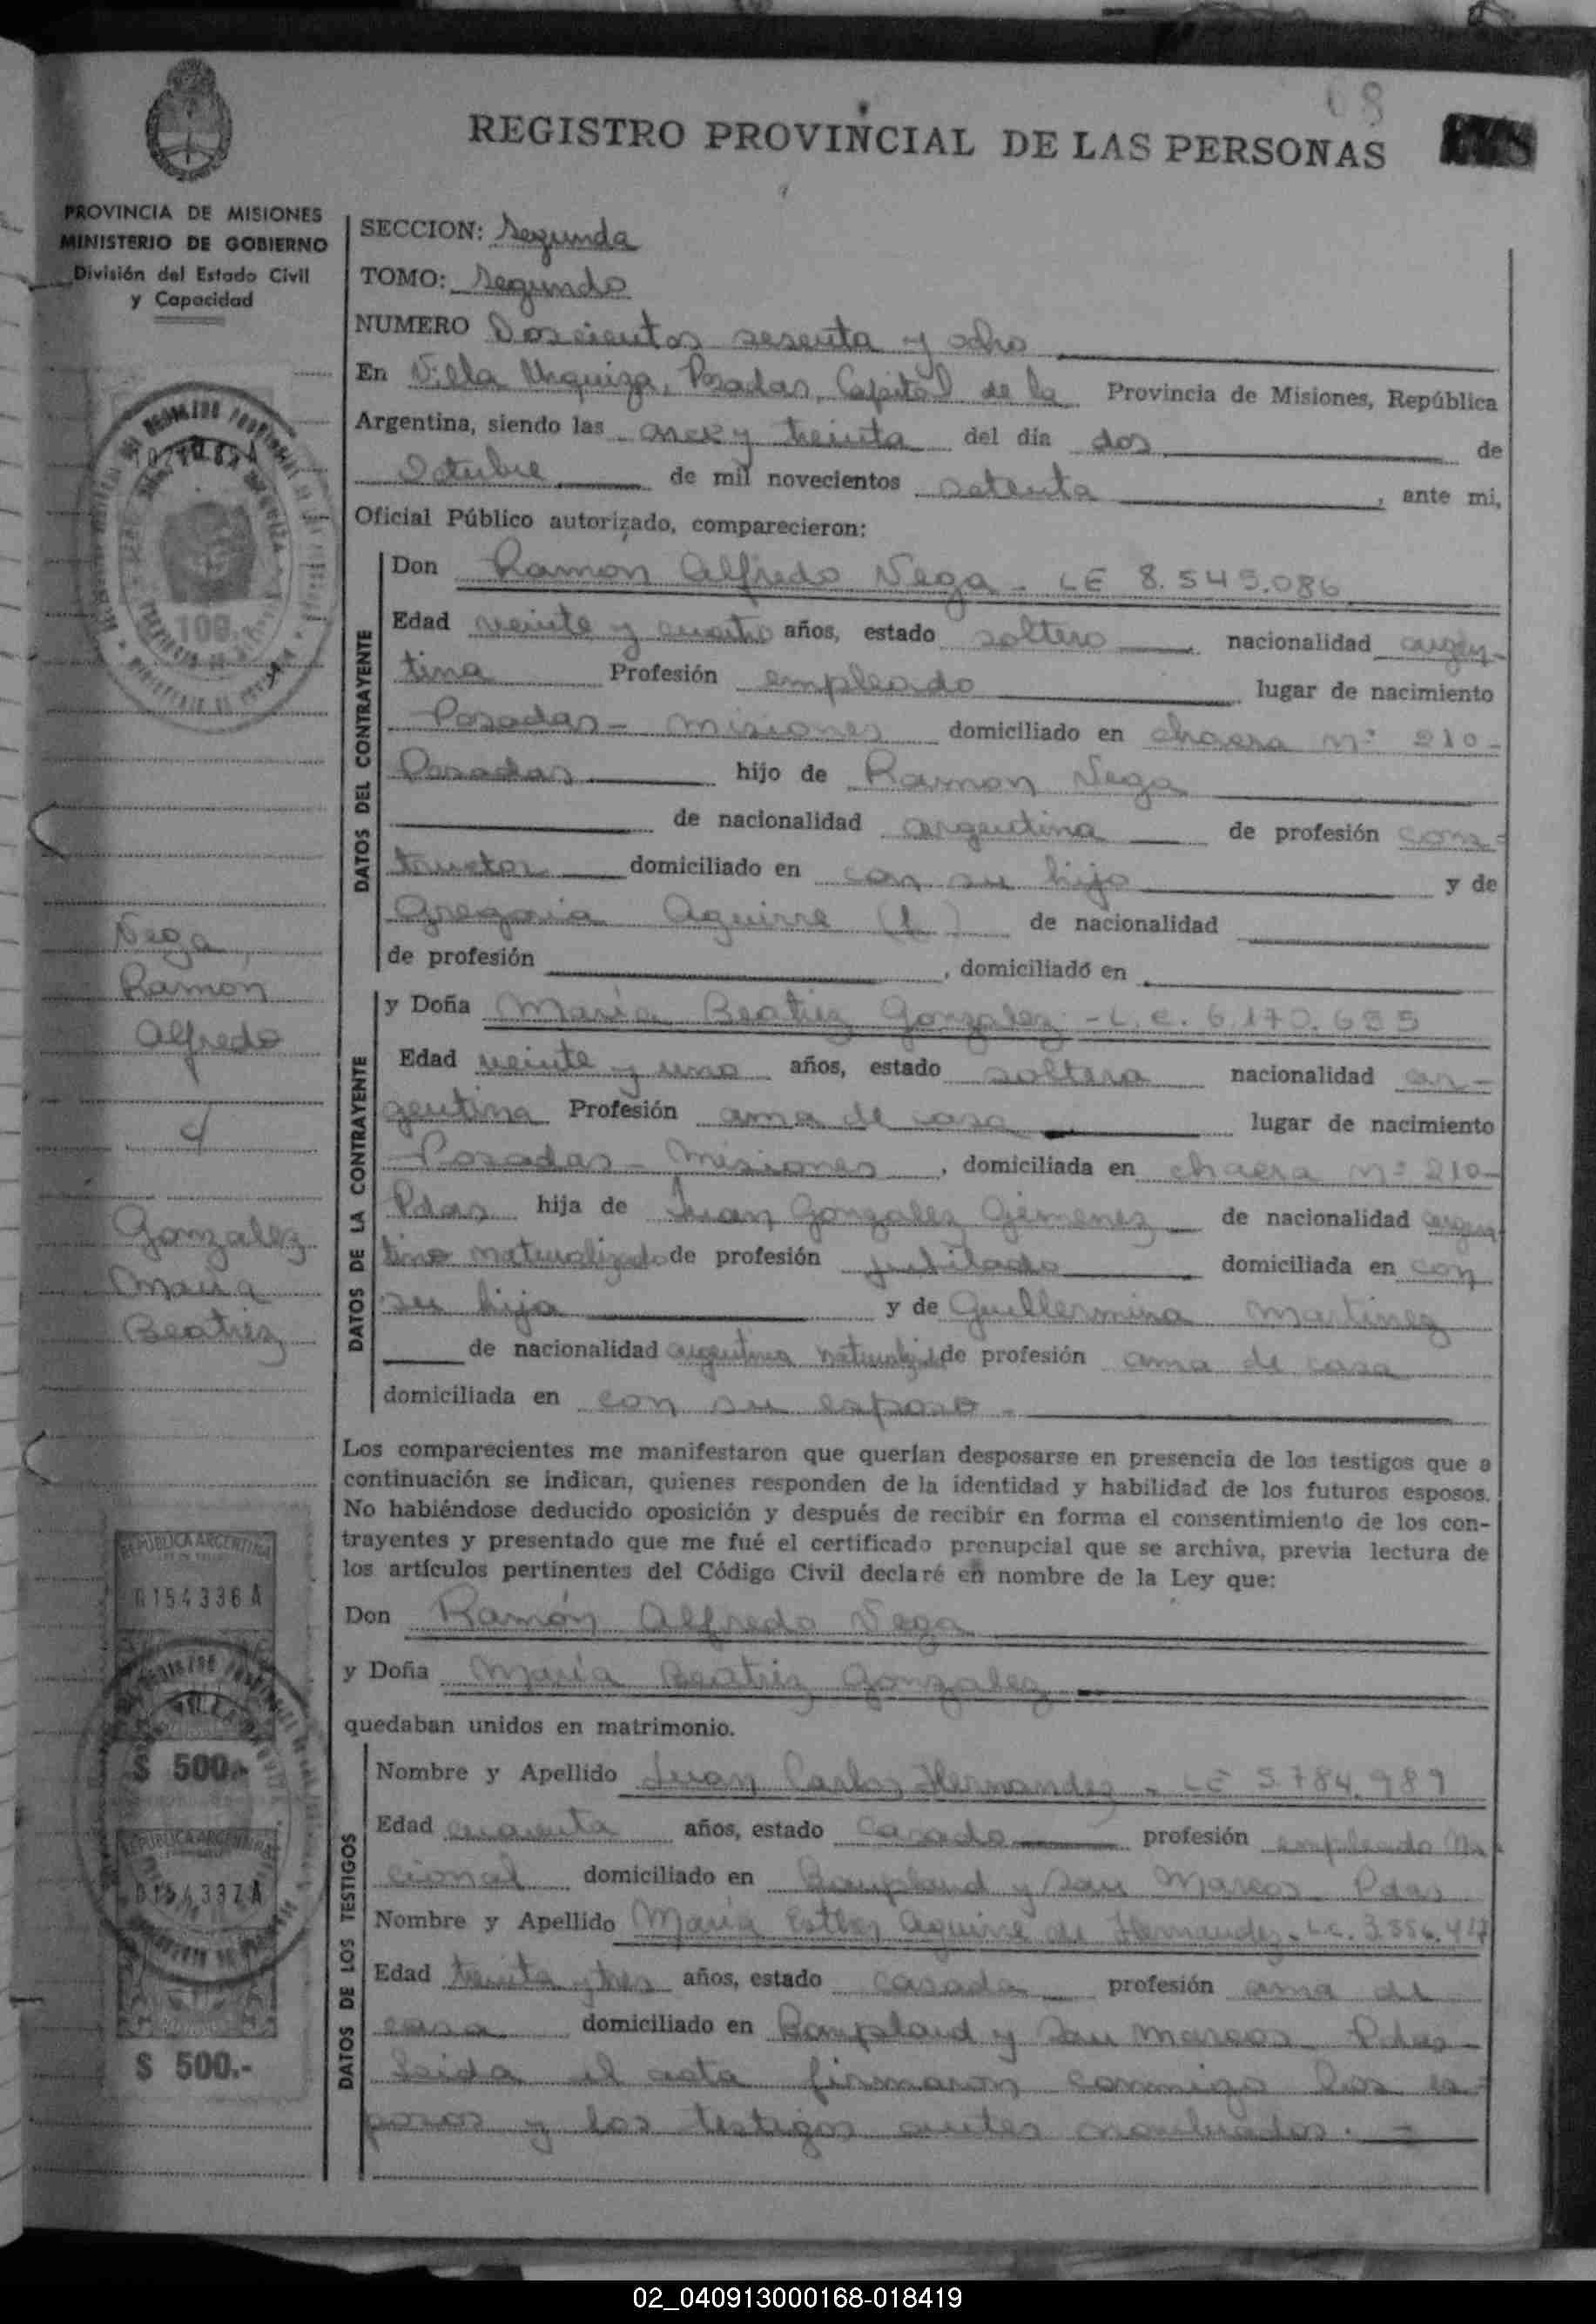 08
REGISTRO PROVINCIAL DE LAS PERSONAS
PROVINCIA DE MISIONES
MINISTERIO DE GOBIERNO
División del Estado Civil
y Capacidad
SECCION: Segunda
TOMO: Segundo
NUMERO Doscientos sesenta y ocho
En Villa Urquiza, Posadas, Capital de la Provincia de Misiones, República
Argentina, siendo las once y treinta del día dos de
Octubre de mil novecientos setenta, ante mi,
Oficial Público autorizado, comparecieron:
DATOS DEL CONTRAYENTE
Don Ramon Alfredo Vega - LE 8.545.086
Edad veinte y cuatro años, estado soltero nacionalidad argen-
tina Profesión empleado lugar de nacimiento
Posadas - Misiones domiciliado en chacra Nº 210-
Posadas hijo de Ramon Vega
de nacionalidad argentina de profesión cons-
tructor domiciliado en con su hijo y de
Gregoria Aguirre (f) de nacionalidad
de profesión , domiciliado en
DATOS DE LA CONTRAYENTE
y Doña María Beatriz Gonzalez - L.C. 6.170.655
Edad veinte y uno años, estado soltera nacionalidad ar-
gentina Profesión ama de casa lugar de nacimiento
Posadas - Misiones, domiciliada en chacra Nº 210-
Pdas hija de Juan Gonzalez Gimenez de nacionalidad argen
tino naturalizado de profesión jubilado domiciliada en con
su hija y de Guillermina Martinez
de nacionalidad argentina de profesión ama de casa
domiciliada en con su esposo -
Los comparecientes me manifestaron que querían desposarse en presencia de los testigos que a
continuación se indican, quienes responden de la identidad y habilidad de los futuros esposos.
No habiéndose deducido oposición y después de recibir en forma el consentimiento de los con-
trayentes y presentado que me fué el certificado prenupcial que se archiva, previa lectura de
los artículos pertinentes del Código Civil declaré en nombre de la Ley que:
Don Ramón Alfredo Vega
y Doña María Beatriz Gonzalez
quedaban unidos en matrimonio.
DATOS DE LOS TESTIGOS
Nombre y Apellido Juan Carlos Hernandez - LE 5.784.989
Edad cuarenta años, estado Casado profesión empleado Na
cional domiciliado en Bompland y San Marcos Pdas
Nombre y Apellido María Esther Aguirre de Hernandez - L.C. 3.556.417
Edad treinta y tres años, estado casada profesión ama de
casa domiciliado en Bompland y San Marcos Pdas-
Leida el acta firmaron conmigo los es-
posos y los testigos antes nombrados. =
Vega,
Ramon
Alfredo
c/
Gonzalez
Maria
Beatriz
100.
REPUBLICA ARGENTINA
0154336 A
$ 500.-
REPUBLICA ARGENTINA
0154337 A
$ 500.-
02_040913000168-018419